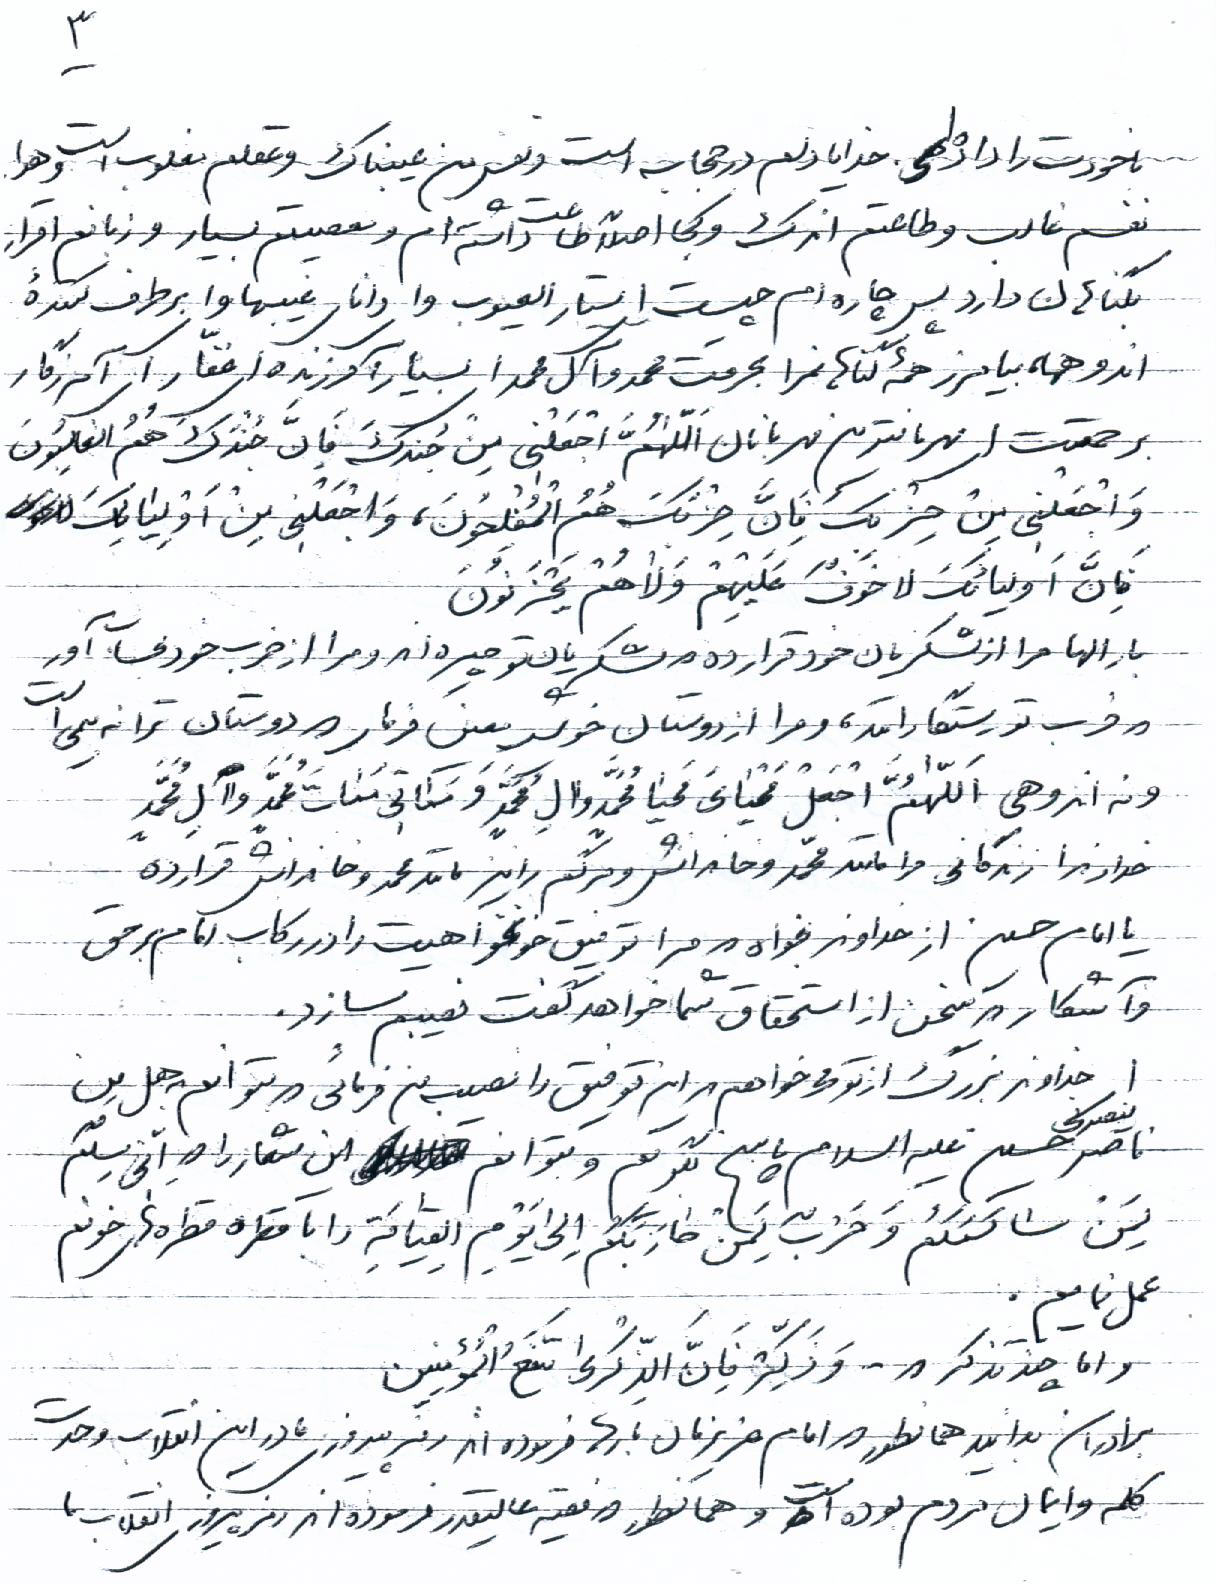 ۳
خودت را دادی. خدایا دلم در حجاب است و نفس من عیبناک و عقلم مغلوب است و هوا
نفسم غالب و طاعتم اندک و کجا اصلاً طاعت داشته‌ام و معصیتم بسیار و زبانم اقرار
بگناهان دارد پس چاره‌ام چیست ای ستار العیوب و ای دانای غیبها و ای برطرف کنندهٔ
اندوهها، بیامرز همهٔ گناهانم را بحرمت محمد و آل محمد ای بسیار آمرزنده ای غفّار ای آمرزگار
برحمتت ای مهربانترین مهربانان اَللّهُمَّ اجْعَلْنی مِنْ جُنْدِکَ فَاِنَّ جُنْدَکَ هُمُ الْغالِبُونَ
وَ اجْعَلْنی مِنْ حِزْبِکَ فَاِنَّ حِزْبَکَ هُمُ الْمُفْلِحُونَ، وَ اجْعَلْنی مِنْ اَوْلِیائِکَ
فَاِنَّ اَوْلِیائَکَ لا خَوْفٌ عَلَیْهِمْ وَ لاٰ هُمْ یَحْزَنُونَ
بار الها مرا از لشکریان خود قرار ده که لشکریان تو چیره‌اند و مرا از حزب خود بحساب آور
که حزب تو رستگارانند، و مرا از دوستان خویش معین فرمای که دوستان ترا نه بیمی است
و نه اندوهی اَللّهُمَّ اجْعَلْ مَحْیایَ مَحْیا مُحَمَّدٍ وَ الِ مُحَمَّدٍ وَ مَمٰاتی مَمٰاتَ مُحَمَّدٍ وَ الِ مُحَمَّدٍ
خداوندا زندگانی مرا مانند محمّد و خاندانش و مرگم را نیز مانند محمد و خاندانش قرار ده
یا امام حسین از خداوند بخواه که مرا توفیق خونخواهیت را در رکاب امام برحق
و آشکار که سخن از استحقاق شما خواهد گفت نصیبم سازد.
ای خداوند بزرگ از تو می‌خواهم که این توفیق را نصیب من فرمائی که بتوانم به هل من
ناصر ینصرنی حسین علیه السلام پاسخ بگویم و بتوانم این شعار را که اِنّی سِلْمٌ
لِمَنْ سالَمَکُمْ وَ حَرْبٌ لِمَنْ حارَبَکُمْ اِلیٰ یَوْمِ الْقِیامَةِ را با قطره قطره‌های خونم
عمل نمایم.
و اما چند تذکر که - وَ ذَکِّرْ فَاِنَّ الذِّکْریٰ تَنْفَعُ الْمُؤْمِنین
برادران بدانید همانطور که امام عزیزمان بارها فرموده‌اند رمز پیروزی ما در این انقلاب وحدت
کلمه و ایمان مردم بوده است و همانطور که فقیه عالیقدر فرموده‌اند رمز پیروزی انقلاب ما